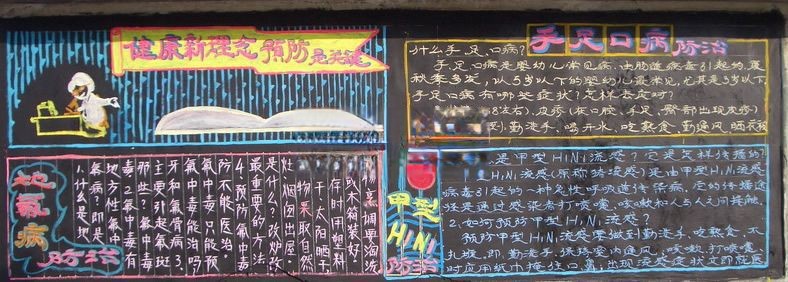 健康新理念 预防是关键
手足口病防治
什么手、足、口病?
手、足、口病是婴幼儿常见病,由肠道病毒引起的,夏
秋季多发,以5岁以下的婴幼儿最常见,尤其是3岁以下,
手足口病有哪些症状?怎样去应对?
皮疹(在口腔、手足、臀部出现皮疹)
勤洗手、喝开水、吃熟食、勤通风、晒衣被
地氟病
防治
1.什么是地
氟病?即是
地方性氟中
毒2.氟中毒有
那些?氟中毒
主要引起氟斑
牙和氟骨病3.
氟中毒能治吗?
氟中毒只能预
防不能医治。
4.预防氟中毒
最重要的方法
是什么?改炉改
灶,烟囱出屋。
物果取自然
干、太阳晒干
存时用塑料
或木箱装好。
烹调要淘洗
甲型
H1N1
防治
是甲型H1N1流感?它是怎样传播的?
H1N1流感(原称猪流感)是由甲型H1N1流感
病毒引起的一种急性呼吸道传染病,它的传播途
径是通过感染者打喷嚏、咳嗽和人与人之间接触,
2、如何预防甲型H1N1流感?
预防甲型H1N1流感要做到勤洗手、吃熟食、不
扎堆,即:勤洗手、保持室内通风、咳嗽、打喷嚏
时应用纸巾掩住口鼻;出现流感症状立即就医